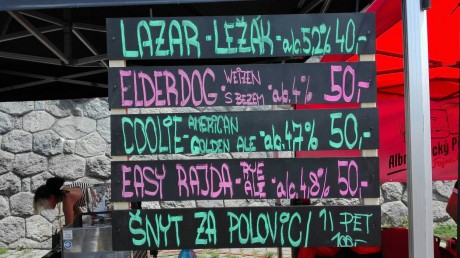 LAZAR - LEŽÁK - alc. 5,2% 40,-
ELDERDOG - WEIZEN S BEZEM - alc. 4% 50,-
COOLIE - AMERICAN GOLDEN ALE - alc. 4,7% 50,-
EASY RAJDA - RYE ALE - alc. 4,8% 50,-
ŠNYT ZA POLOVIC / 1l PET 100,-